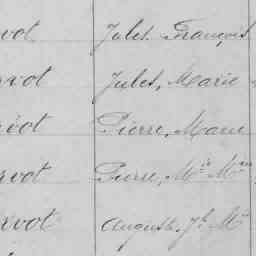 vot Jules François
rvot Jules, Marie
rvot Pierre, Marie
rvot Pierre, M.ie M
rvot Auguste, J.h M.ie